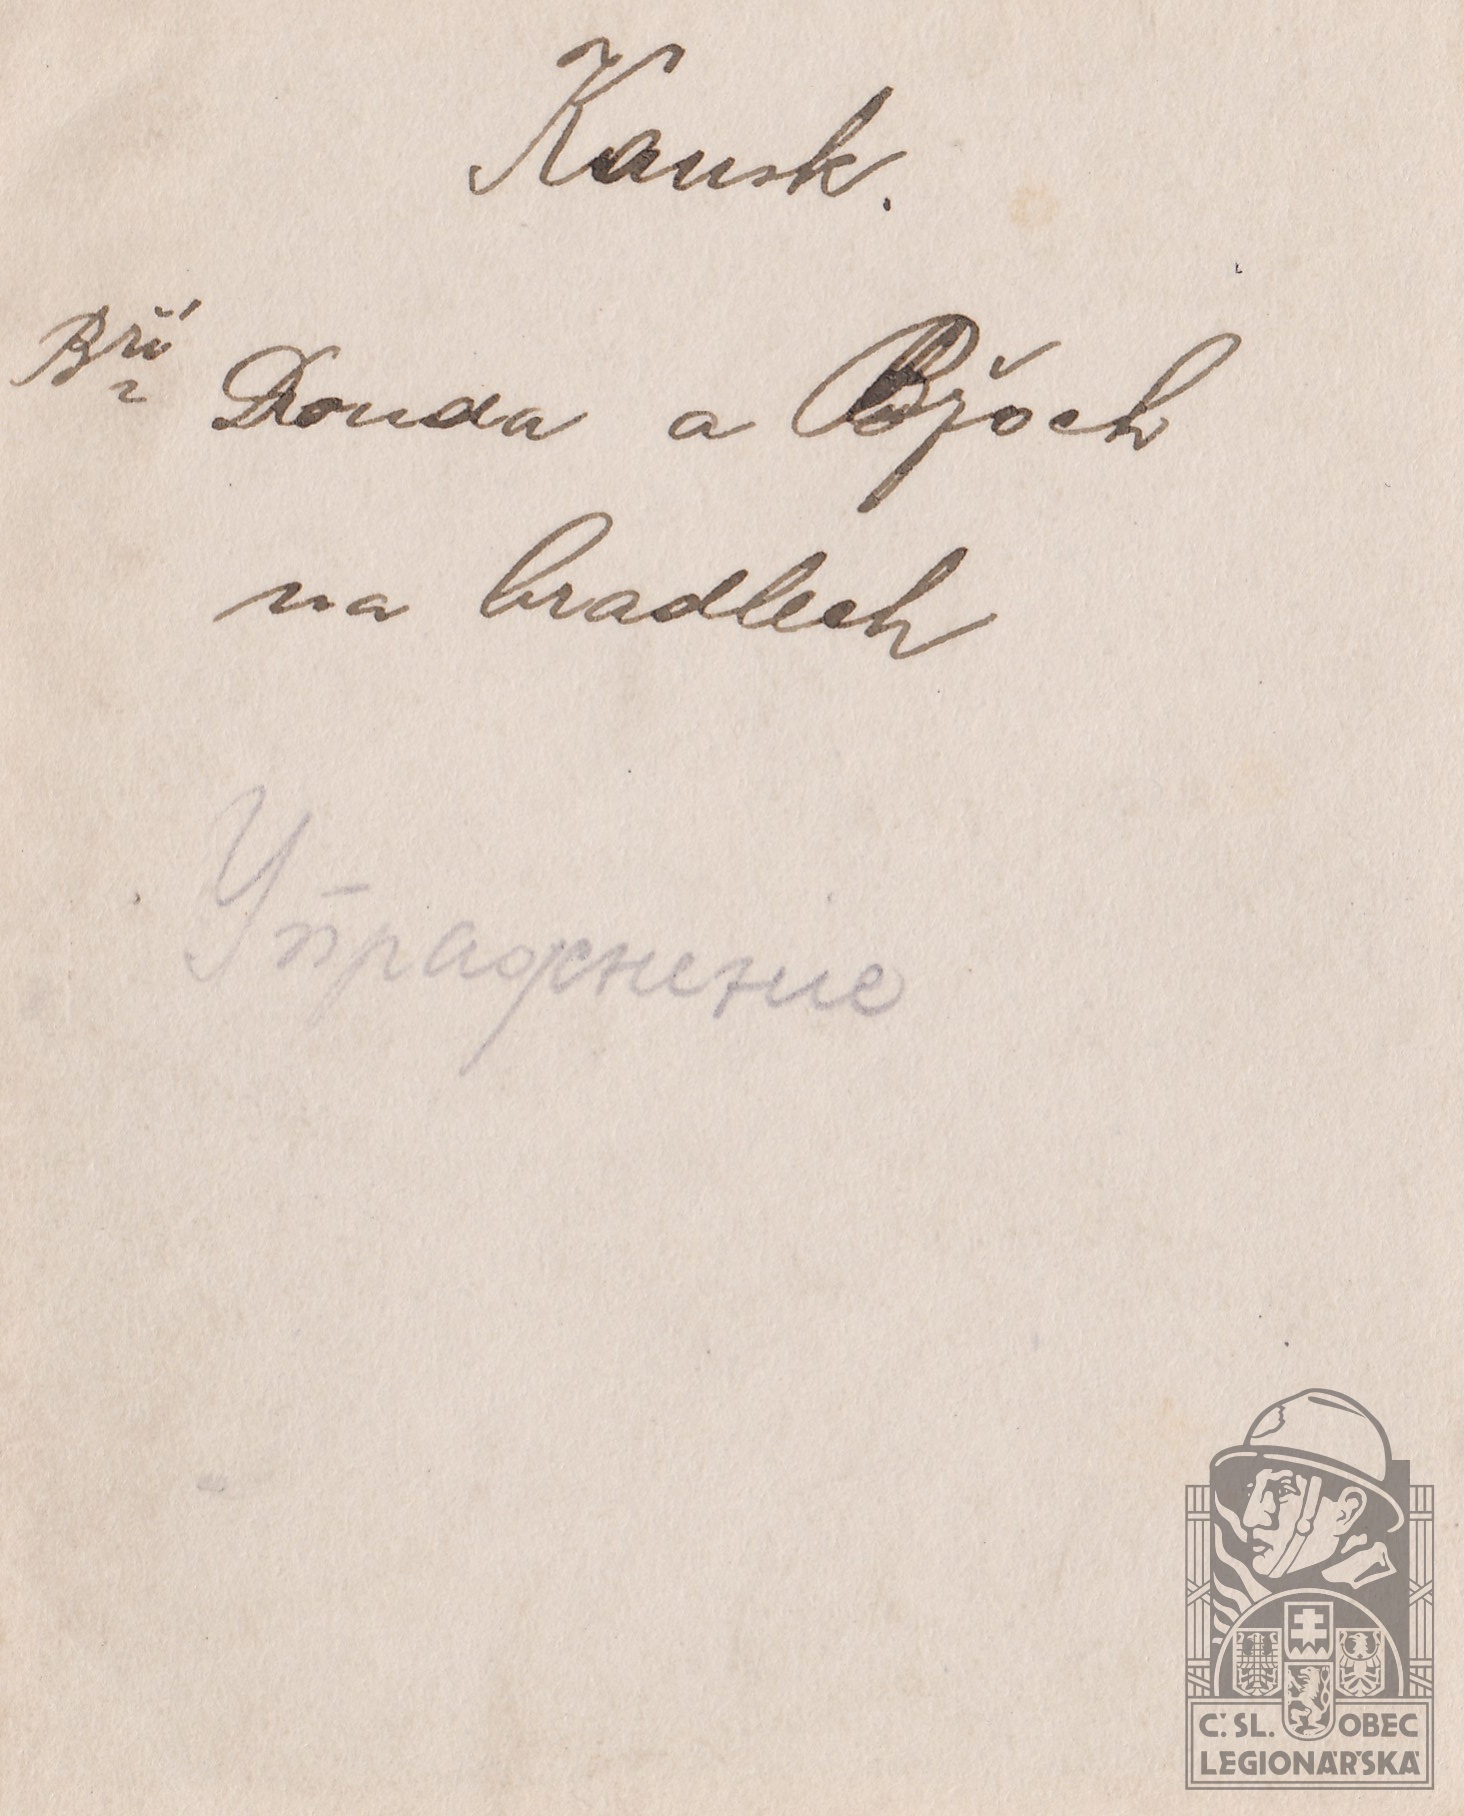 Kansk.
Bří Drouda a Břoch
na bradlech
Упражнение
Č. SL. OBEC
LEGIONÁŘSKÁ